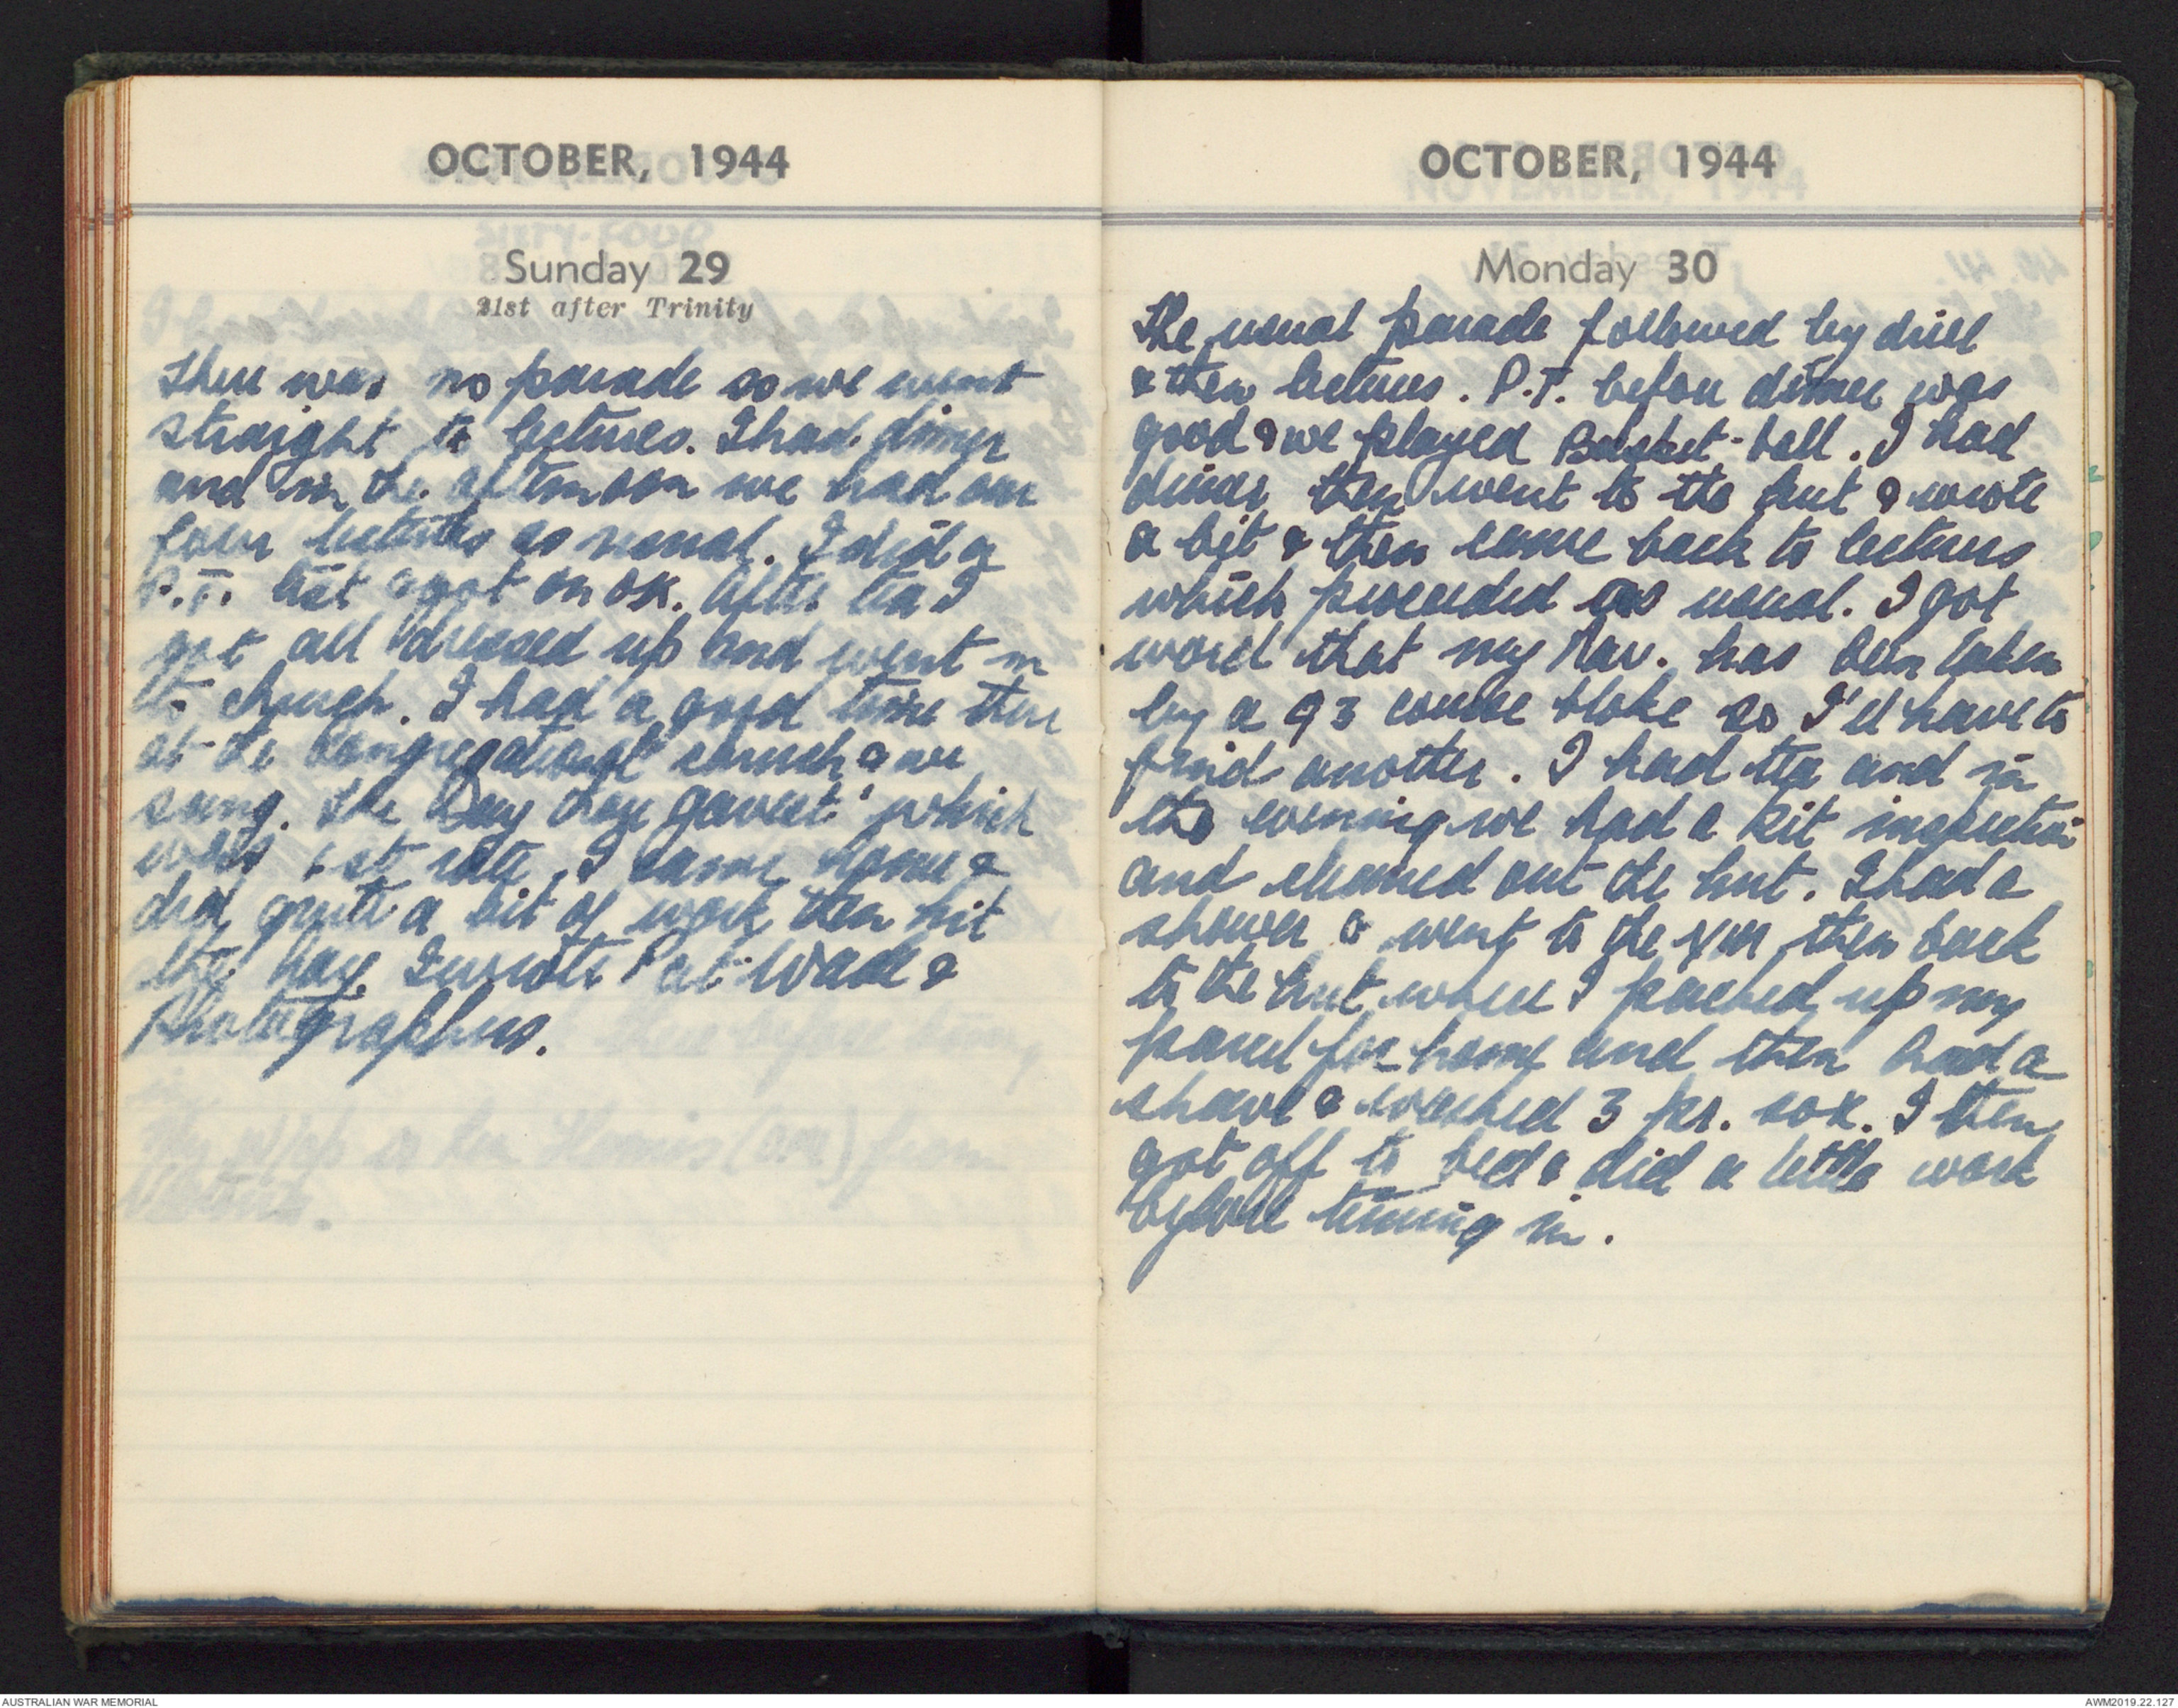 OCTOBER, 1944
Sunday 29
21st after Trinity
There was no parade so we went
straight to lectures. I had dinner
and in the afternoon we had our
four lectures as usual. I did a
P.T. test & got on OK. After tea I
got all dressed up and went in
to church. I had a good time there
at the Congregational church & we
sang. The Day thou gavest' which
was 1st rate. I came home &
did quite a bit of work then hit
the hay. I wrote Pat Wade &
Photographers.
OCTOBER, 1944
Monday 30
The usual parade followed by drill
& then lectures. P.T. before dinner was
good & we played Basket-ball. I had
dinner then went to the hut & wrote
a bit & then came back to lectures
which proceeded as usual. I got
word that my Nav. has been taken
by a 93 course bloke so I'll have to
find another. I had tea and in
the evening we had a kit inspection
and cleaned out the hut. I had a
shower & went to the YM then back
to the hut where I packed up my
parcel for home and then had a
shave & washed 3 prs. sox. I then
got off to bed & did a little work
before turning in.
AUSTRALIAN WAR MEMORIAL
AWM2019.22.127